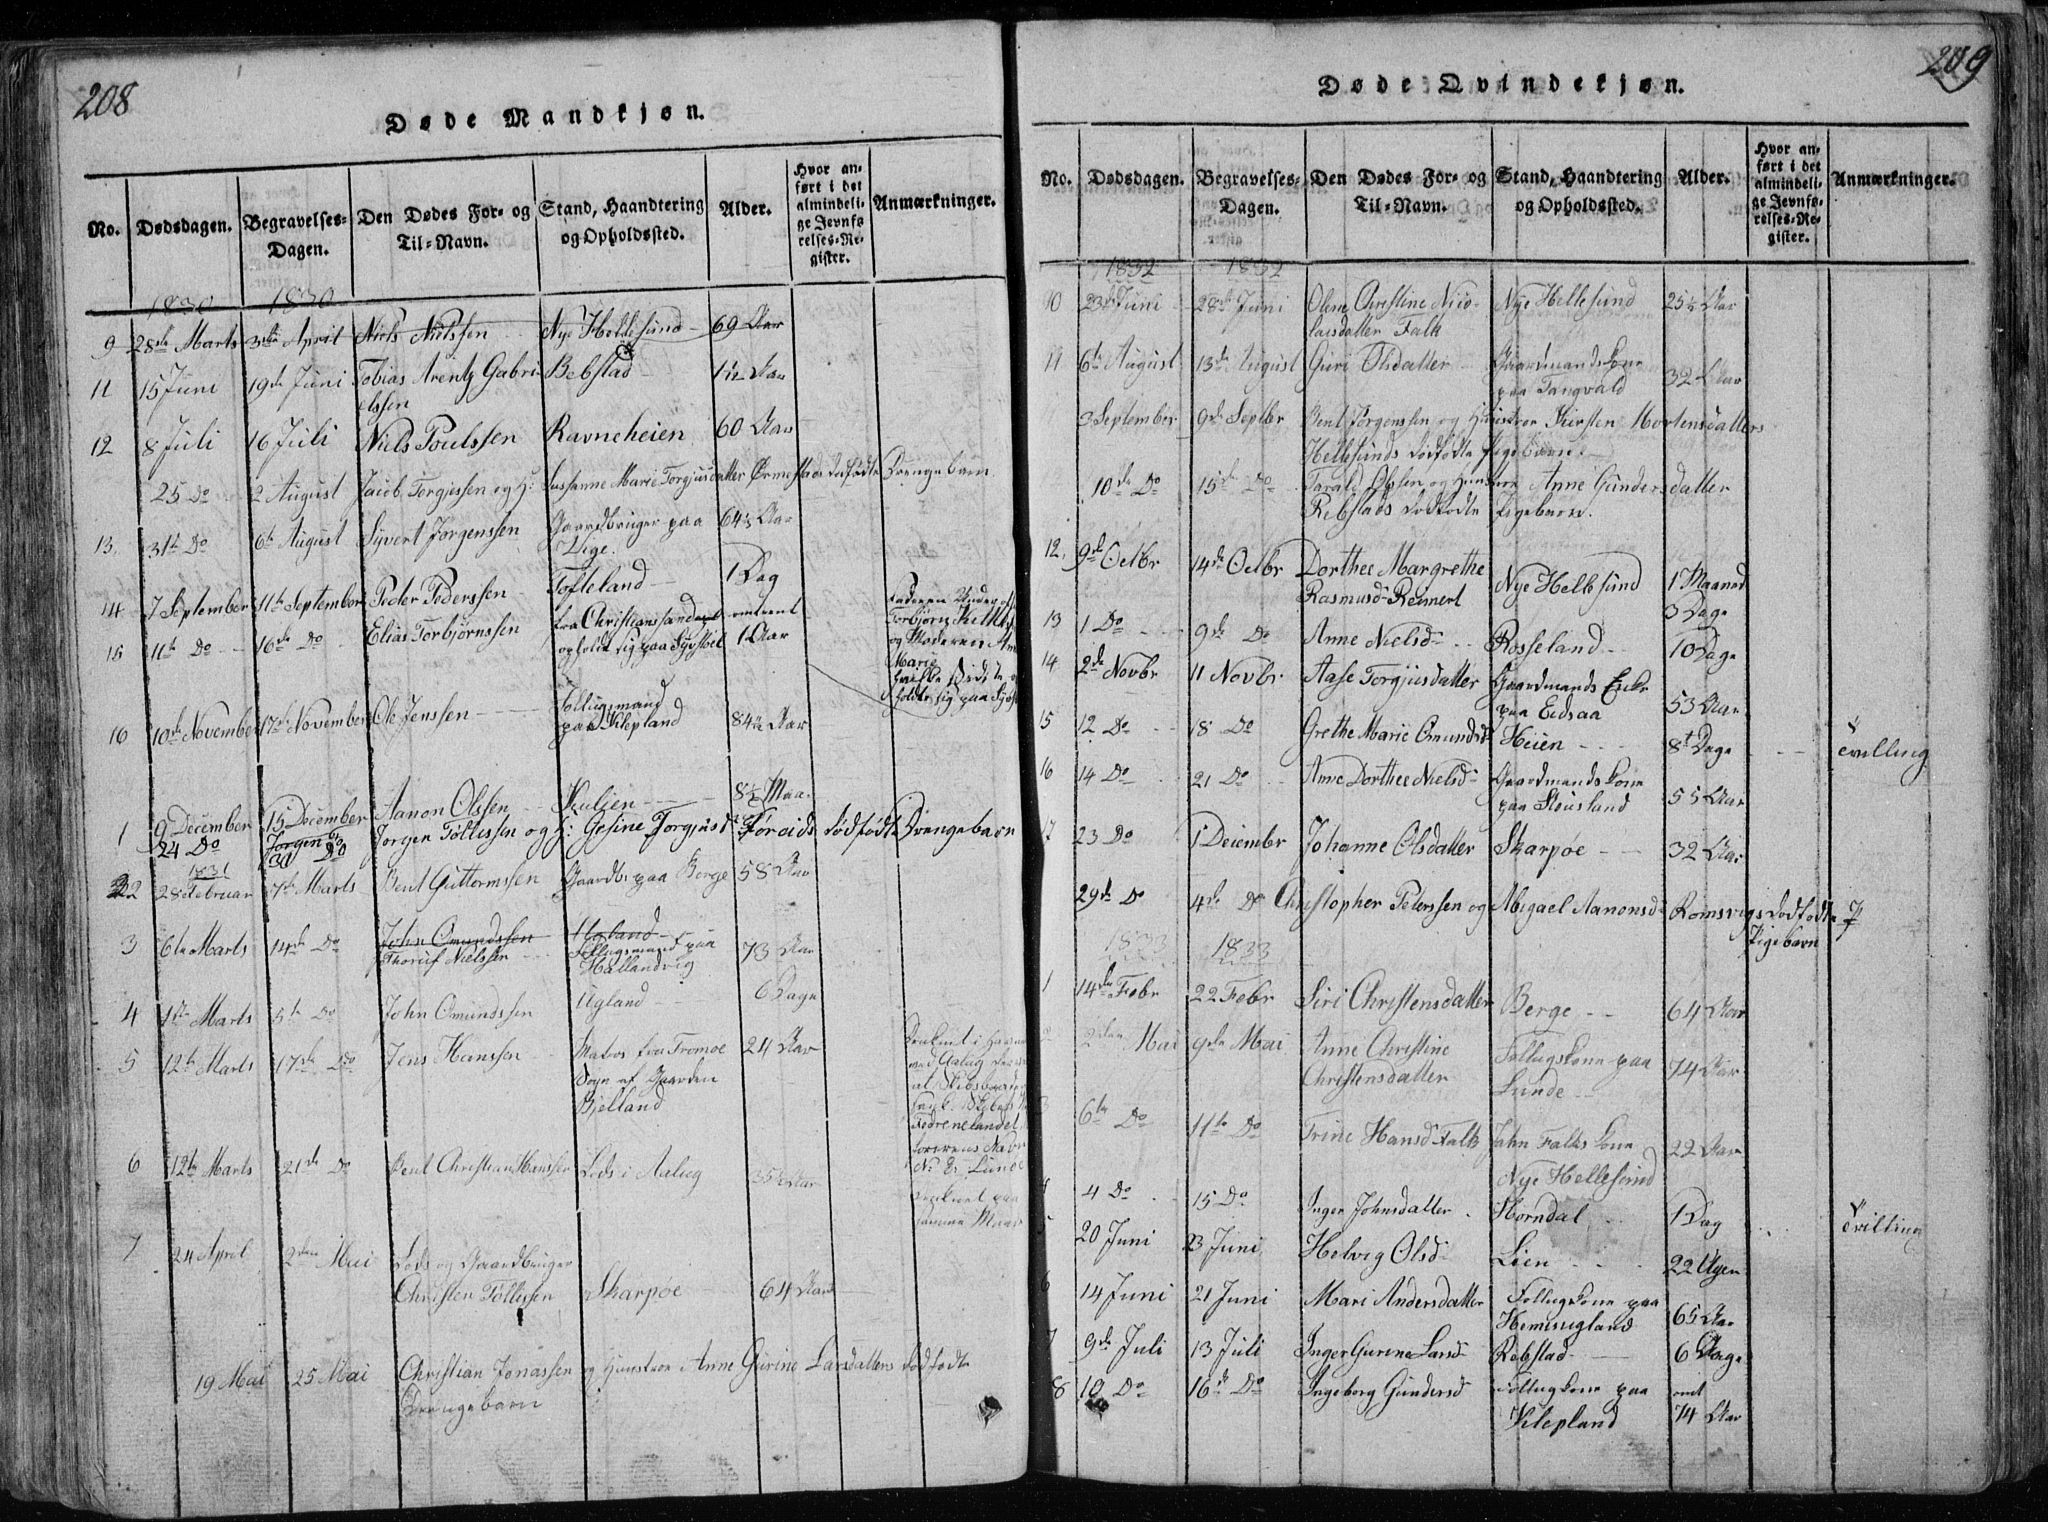 208
Døde Mandkjøn.
No. Dødsdagen. Begravelses-Dagen. Den Dødes For- og Til-Navn. Stand, Haandtering og Opholdssted. Alder. Hvor anført i det almindelige Jevnførelses-Register. Anmærkninger.
1830 1830
9 28de Marts 3die April Niels Nielssen Nye Hellesund 69 Aar
11 15 Juni 19de Juni Tobias Arentz Gabrielssen Rebstad 1 1/2 Aar
12 8 Juli 16 Juli Niels Poulssen Ravneheien 60 Aar
25 Do 2 August Jacob Torgiussen og H: Susanne Marie Torgiusdatter Ormestads dødfødte Drengebarn
13. 31te Do 6te August Syvert Jørgenssen Gaardbruger paa Vige. 64 1/2 Aar
14 7 September 11te September Peder Pederssen Tofteland 1 Dag
15 11te Do 16de Do Elias Torbjørnssen fra Christianssand opholdt sig paa omtrent 1 Aar
Faderen
Torbjørn
og Moderen
Marie
sidste
holdt sig paa
16 10de November 17de November Ole Jenssen Follugsmand paa Kilepland 84 1/2 Aar
1 9 December 15 December Aanon Olssen Kulien 8 1/2 Maa.
24 Do 30 Do Jørgen Tøllissen og H: Gesine Torgjusd: dødfødte Drengebarn
1831
2 28 Februar 7de Marts Bent Guttormssen Gaardbr paa Berge 58 Aar
3 6te Marts 14de Do John Omundssen Ugland
Nielssen Follugsmand paa Hallandvig 73 Aar
4 1ste Marts 5te Do John Omundssen Ugland 6 Dage
5 12te Marts 17de Do Jens Hanssen Matros fra Tromøe Sogn af Gaarden Bjelland 24 Aar
Fedrenelandet
N: E: Lunde
6 12te Marts 21de Do Bent Christian Hanssen Lods i Aalug 35 Aar
druknet paa samme Maade
7 24 April 2den Mai Lods og Gaardbruger
Christen Tøllissen Skarpøe 64 Aar
19 Mai 25 Mai Christian Jonassen og Hunstroe Anne Gurine Larsdatters dødfødte
Drengebarn
209
Døde Qvindekjøn.
No. Dødsdagen. Begravelses-Dagen. Den Dødes For- og Til-Navn. Stand, Haandtering og Opholdssted. Alder. Hvor anført i det almindelige Jevnførelses-Register. Anmærkninger.
1832 1832
10 23de Juni 28de Juni Olene Christine Nicolaisdatter Falk Nye Hellesund 25 1/2 Aar
11 6te August 13de August Guri Olsdatter Gaardmandskone paa Tangvald 32 Aar
3 September 9de Septbr Bent Jørgenssen og Hunstroe Kirsten Mortensdatters
Hellesunds dødfødte Pigebarn.
10de Do 15de Do Tarald Olssen og Hunstroe Anne Gundersdatter
Rebstads dødfødte Pigebarn.
12. 9de Octbr 14de Octbr Dorthee Margrethe Rasmusd: Reinert Nye Hellesund 1 Maaned 3 Dage
13 1 Do 9de Do Anne Nielsd: Rosseland 10 Dage
14 2de Novbr 11 Novbr Aase Torgjusdatter Gaardmands Enke paa Eidsaa 53 Aar
15 12 Do 18 Do Grethe Marie Omundsd: Heien 8t Dage Tvilling
16 14 Do 21 Do Anne Dorthee Nielsd: Gaardmandskone paa Stousland 55 Aar
17 23 Do 1 December Johanne Olsdatter Skarpøe 32 Aar
29de Do 4de Do Christopher Peterssen og Abigael Aanonsd: Romsvigs dødfødte Pigebarn
1833 1833
1 14de Febr 22 Febr Siri Christensdatter Berge 64 Aar
2 2den Mai 9de Mai Anne Christine Christensdatter Follugskone paa Lunde 74 Aar
3 6te Do 11te Do Trine Hansd: Falk John Falks Kone Nye Hellesund 22 Aar
4 4 Do 15 Do Inger Johnsdatter Horndal 1 Dag Tvilling
5 20 Juni 23 Juni Helvig Olsd: Lien 22 Uger
6 14 Juni 21 Juni Mari Andersdatter Follugskone paa Hemisugland 65 Aar
7 9de Juli 13 Juli Inger Gurine Larsd: Rebstad 6 Dage
8 10 Do 16de Do Ingeborg Gundersd: Follugskone paa Kilepland omt 74 Aar